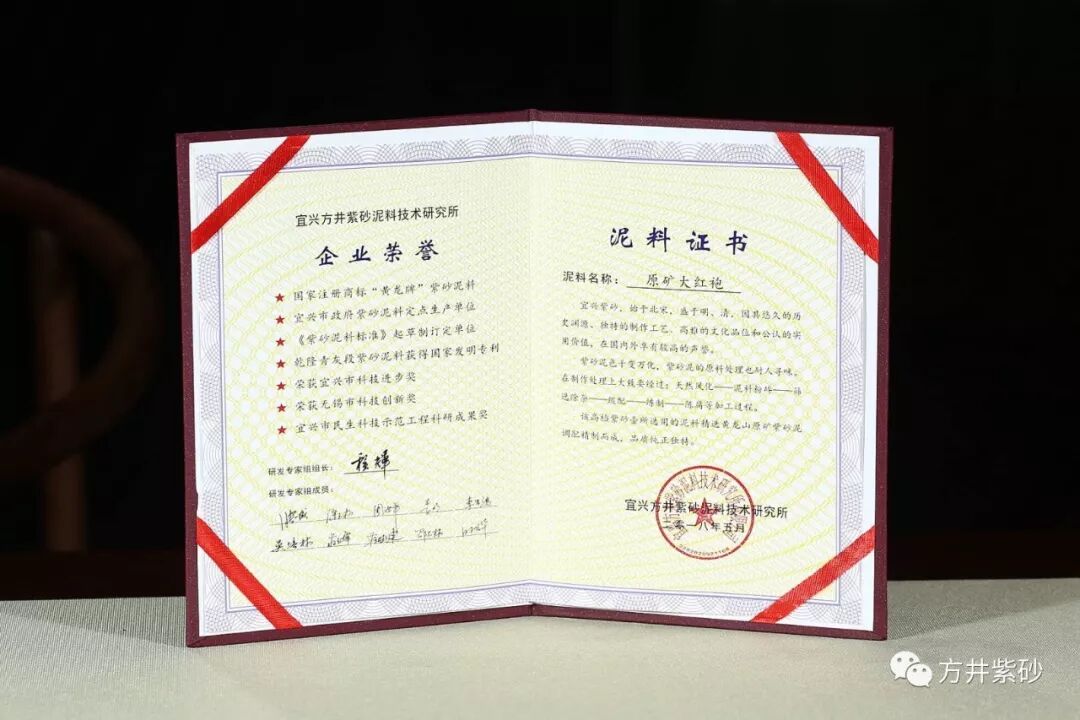 宜兴方井紫砂泥料技术研究所
企业荣誉
★ 国家注册商标“黄龙牌”紫砂泥料
★ 宜兴市政府紫砂泥料定点生产单位
★ 《紫砂泥料标准》起草制订定单位
★ 乾隆青灰段紫砂泥料获得国家发明专利
★ 荣获宜兴市科技进步奖
★ 荣获无锡市科技创新奖
★ 宜兴市民生科技示范工程科研成果奖
研发专家组组长：
研发专家组成员：
泥料证书
泥料名称：原矿大红袍
宜兴紫砂，始于北宋，盛于明、清，因其悠久的历
史渊源、独特的制作工艺、高雅的文化品位和公认的实
用价值，在国内外享有较高的声誉。
紫砂泥色千变万化，紫砂泥的原料处理也耐人寻味。
在制作处理上大致要经过：天然风化——泥料粉碎——筛
选除杂——级配——炼制——陈腐等加工过程。
该高档紫砂壶所选用的泥料精选黄龙山原矿紫砂泥
调配精制而成，品质纯正独特。
宜兴方井紫砂泥料技术研究所
二零一八年五月
方井紫砂